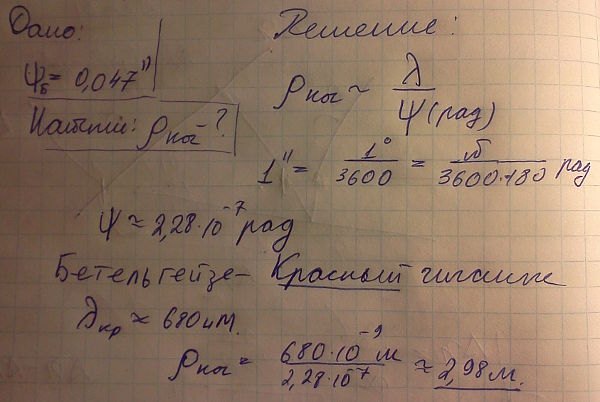 Дано:
Решение:
ψб = 0,047"
Найти: ρког - ?
ρког ~ λ / ψ(рад)
1" = 1° / 3600 = π / 3600·180 рад
ψ ≈ 2,28·10⁻⁷ рад
Бетельгейзе – Красный гигант
λкр ≈ 680нм.
ρког = 680·10⁻⁹ м / 2,28·10⁻⁷ ≈ 2,98м.